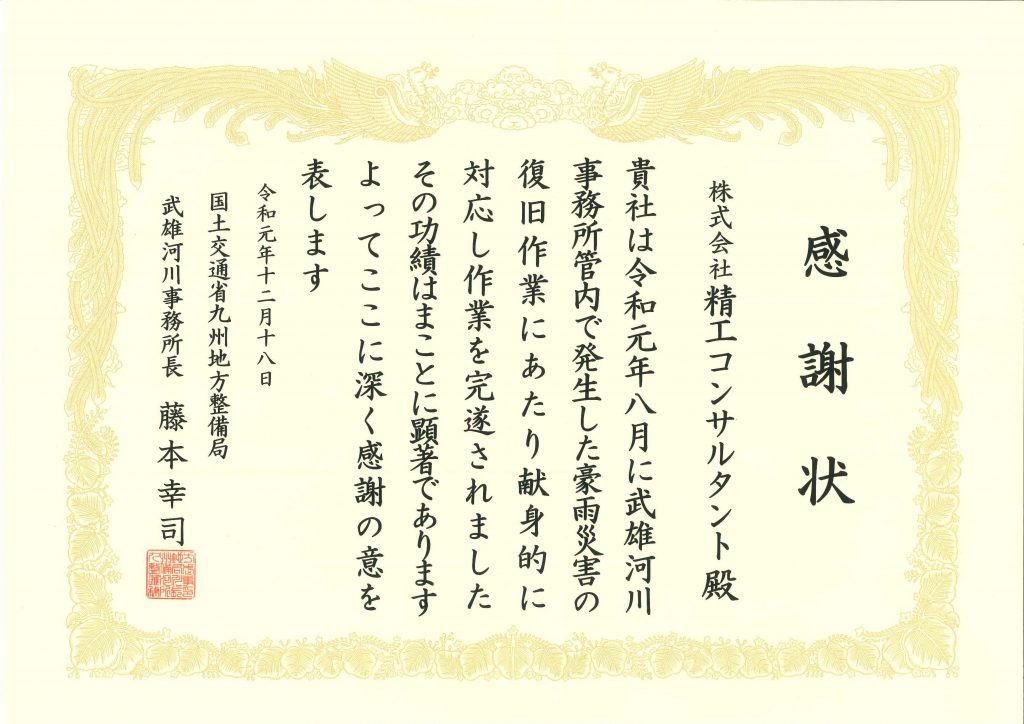 感謝状
株式会社精工コンサルタント殿
貴社は令和元年八月に武雄河川
事務所管内で発生した豪雨災害の
復旧作業にあたり献身的に
対応し作業を完遂されました
その功績はまことに顕著であります
よってここに深く感謝の意を
表します
令和元年十二月十八日
国土交通省九州地方整備局
武雄河川事務所長 藤本幸司